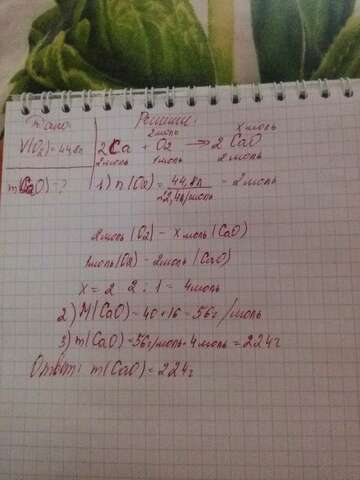 Дано:
Решение:
2моль
x моль
V(O2)=44,8л
2Ca + O2 → 2 CaO
2моль 1моль 2моль
m(CaO)-?
1) n(O2) = 44,8л / 22,4л/моль = 2моль
2моль (O2) - x моль (CaO)
1моль (O2) - 2моль (CaO)
x = 2 · 2 : 1 = 4моль
2) M(CaO) = 40 + 16 = 56г/моль
3) m(CaO) = 56г/моль · 4моль = 224г
Ответ: m(CaO) = 224г